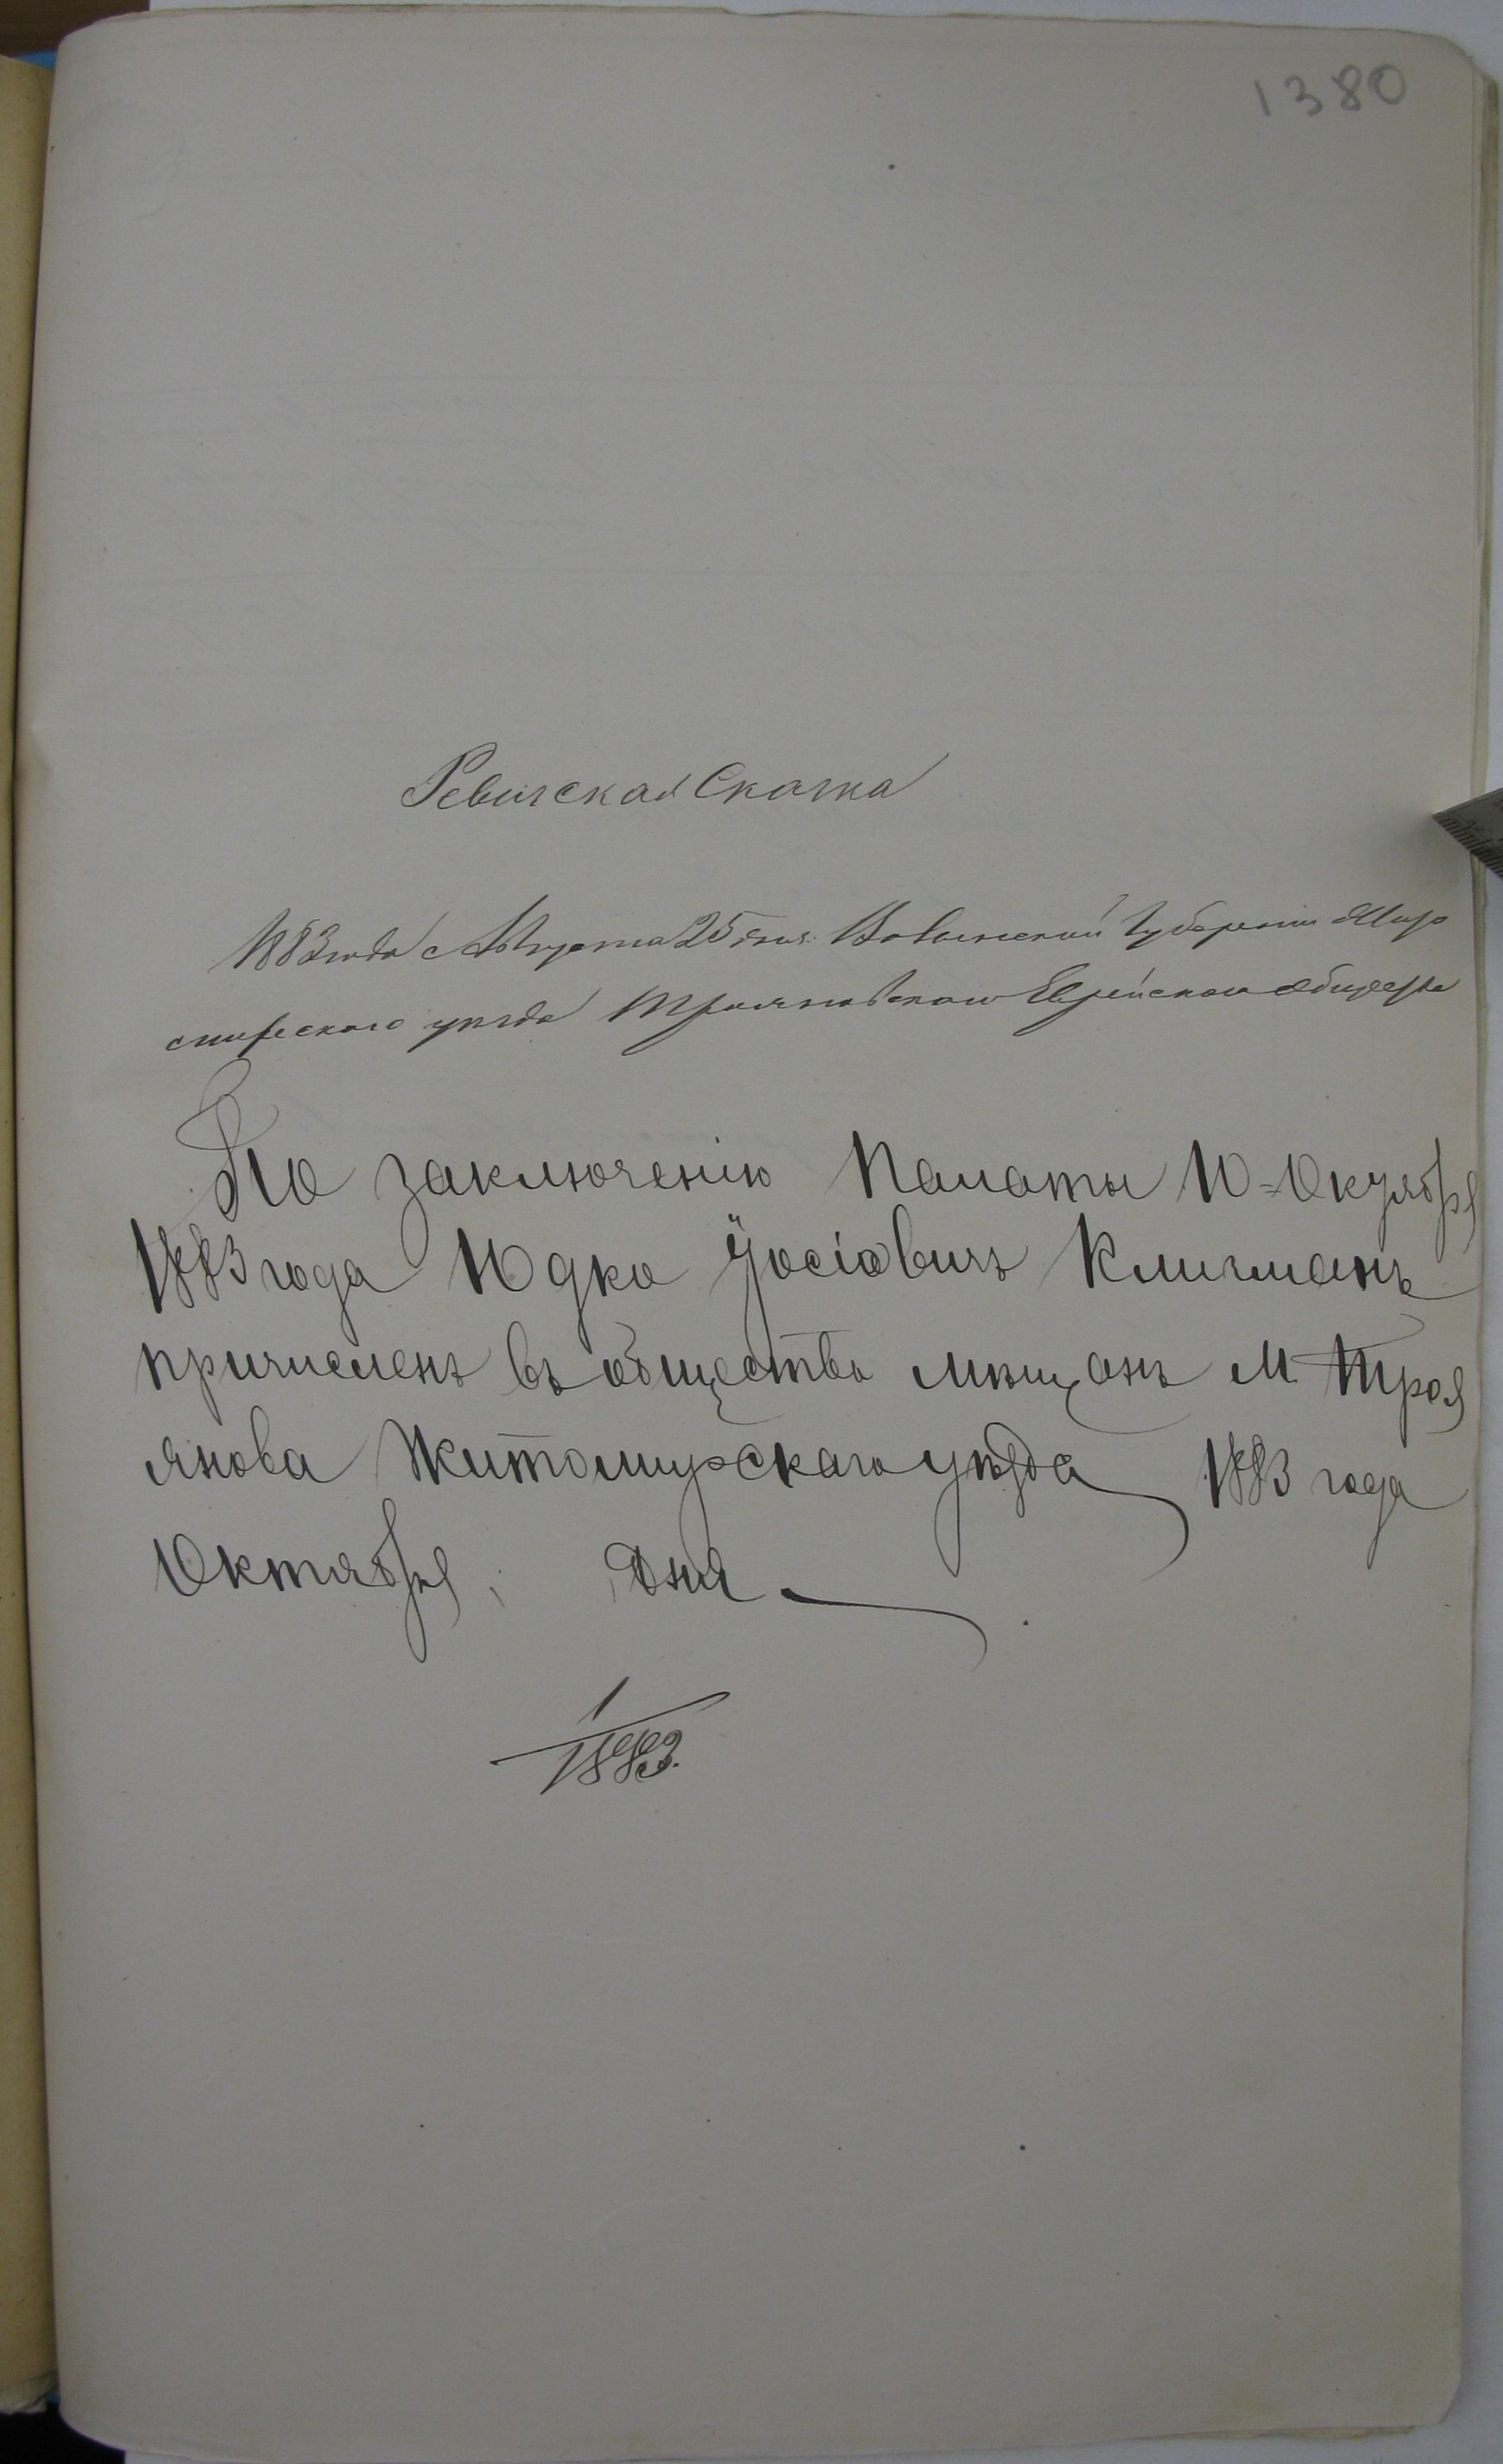 1380
Ревизская Сказка
1883 года Августа 25 дня Волынской Губерніи Жито
мирского уѣзда Трояновского Еврейского Общества
По заключенію Палаты 10 = Октября
1883 года Юдко Іосіовичъ Клигманъ
причисленъ въ общество мѣщанъ М. Троя
янова Житомирскаго уѣзда 1883 года
Октября, дня
1/1883.